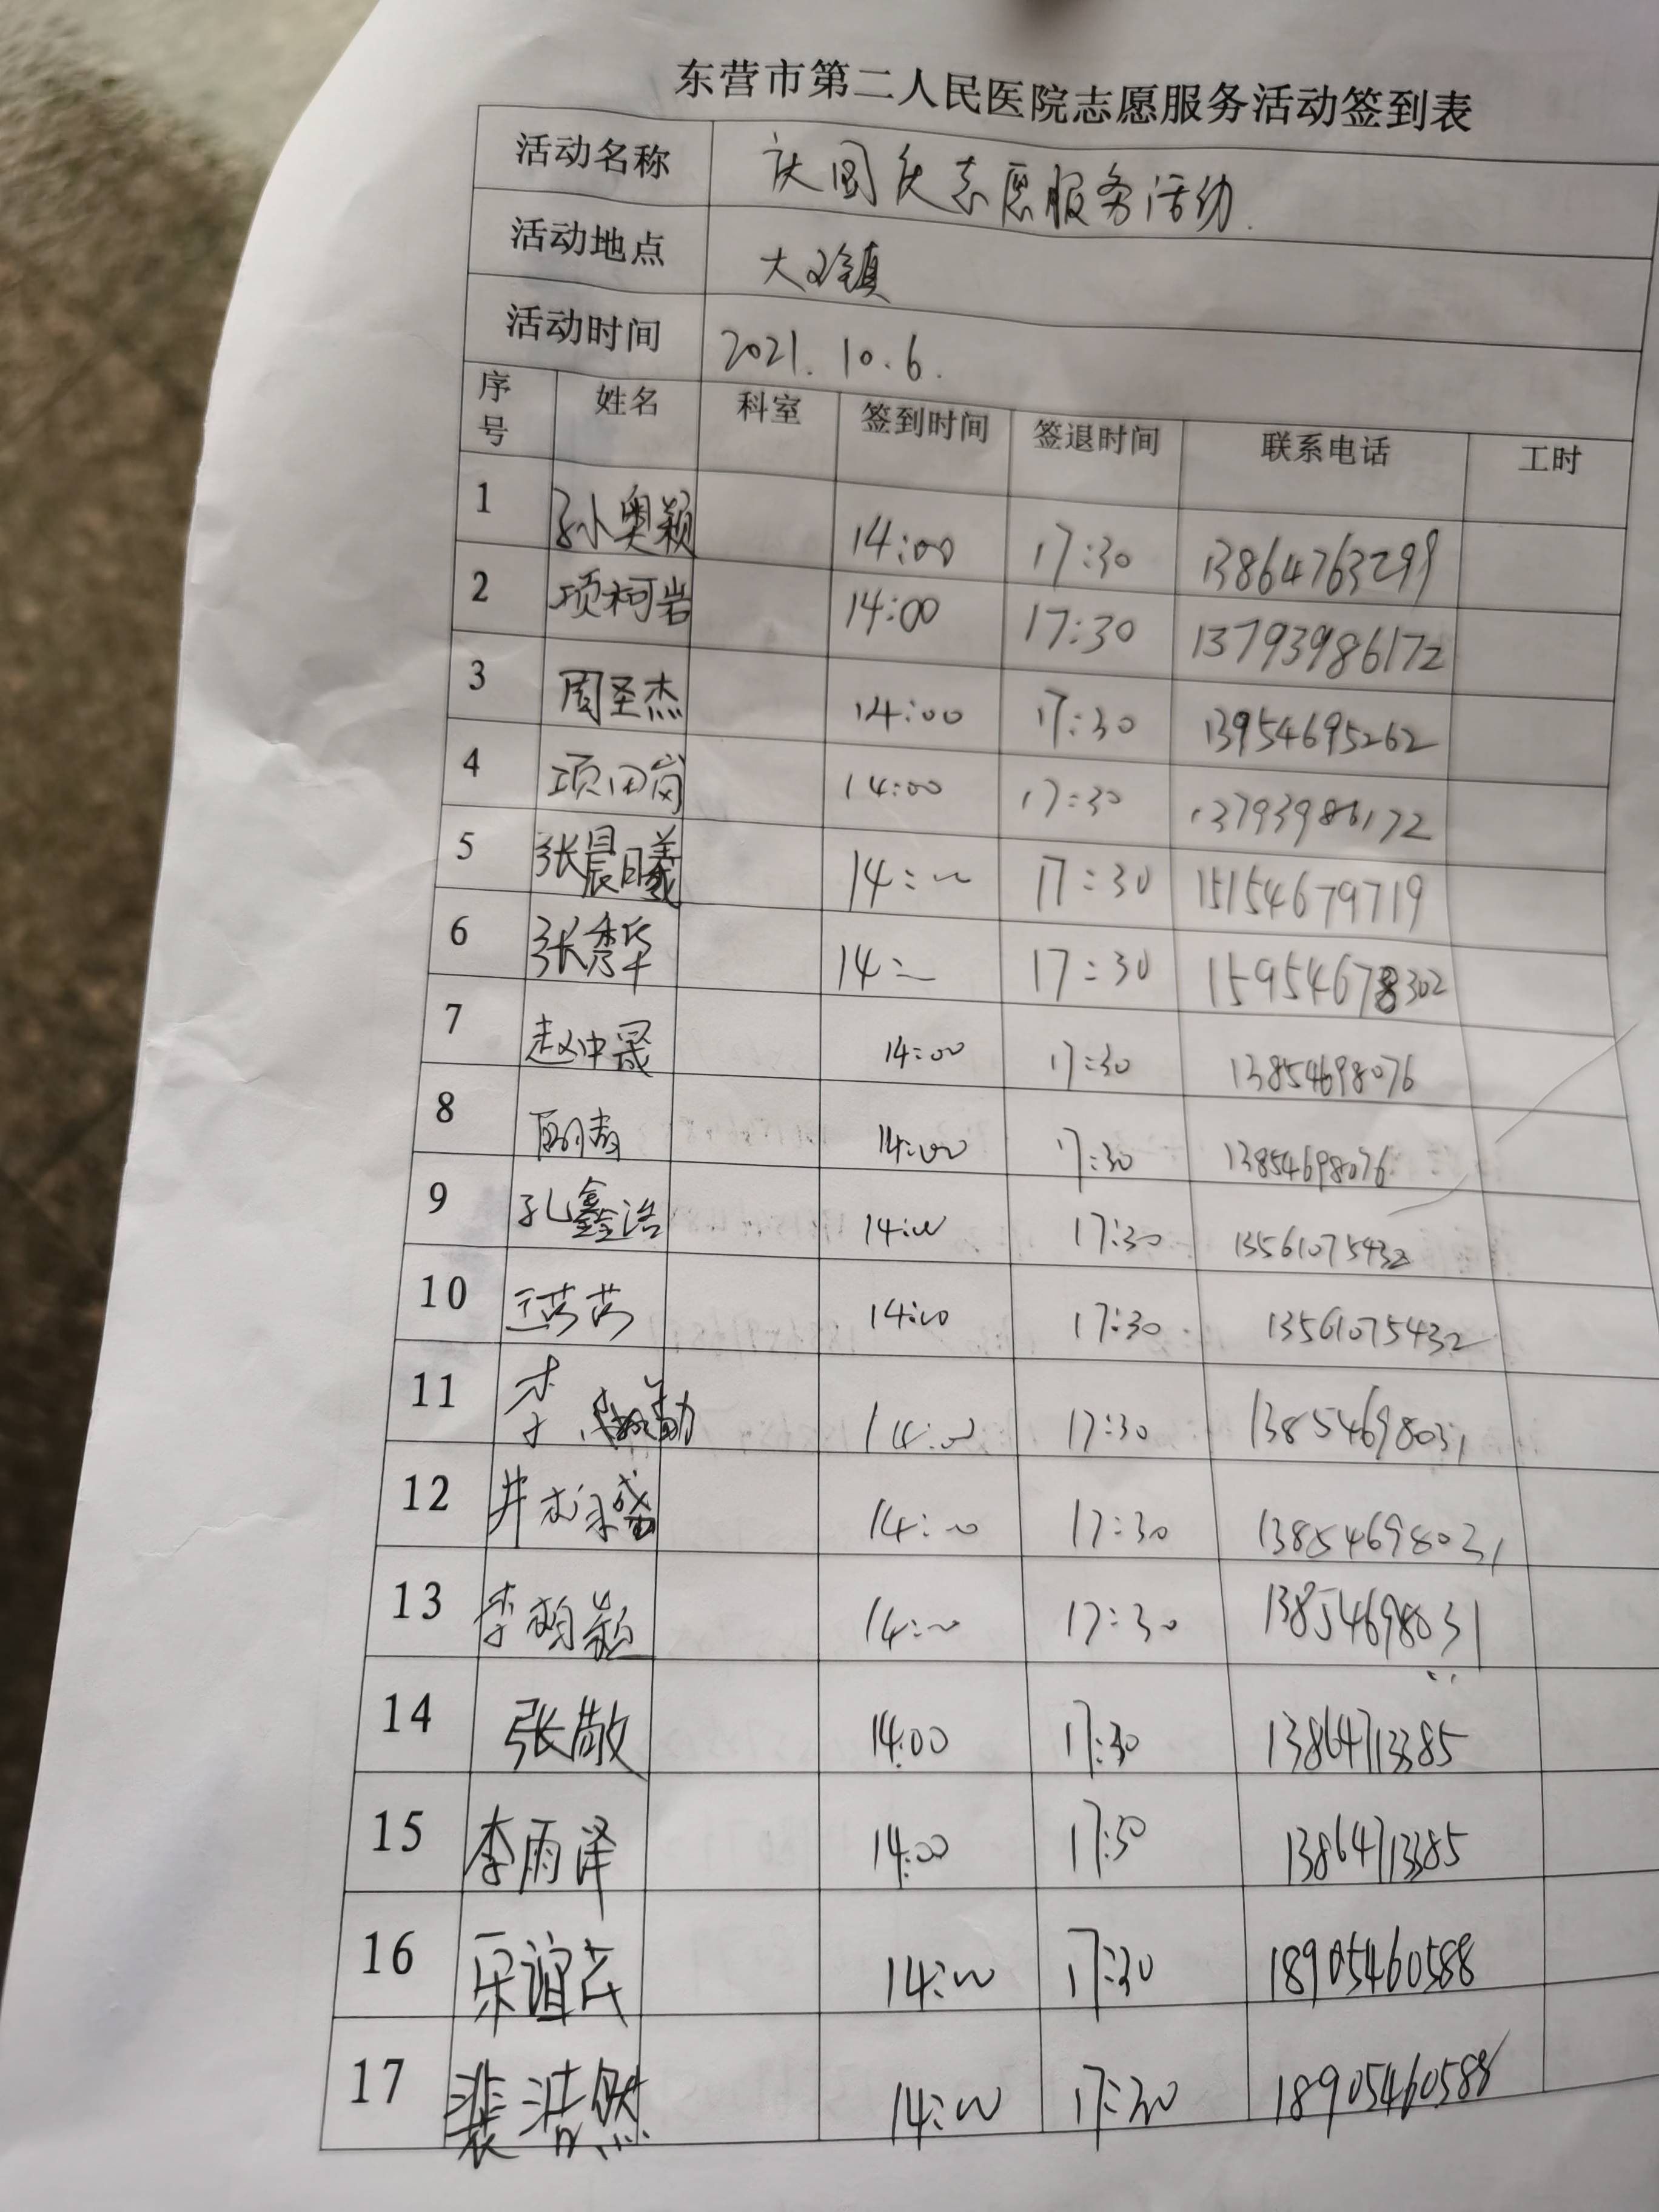 东营市第二人民医院志愿服务活动签到表
活动名称 庆国庆志愿服务活动.
活动地点 大王镇
活动时间 2021.10.6.
序号 姓名 科室 签到时间 签退时间 联系电话 工时
1 孙奥颖 14:00 17:30 13864763299
2 项柯岩 14:00 17:30 13793986172
3 周圣杰 14:00 17:30 13954695262
4 项田岗 14:00 17:30 13793986172
5 张晨曦 14:00 17:30 15154679719
6 张秀华 14:00 17:30 15954678302
7 赵冲晟 14:00 17:30 13854698076
8 14:00 17:30 13854698076
9 孔鑫浩 14:00 17:30 13561075432
10 王芸芸 14:00 17:30 13561075432
11 李 14:00 17:30 13854698031
12 14:00 17:30 13854698031
13 李 14:00 17:30 13854698031
14 张敬 14:00 17:30 13864713385
15 李雨泽 14:00 17:30 13864713385
16 乐谊茂 14:00 17:30 18905460588
17 裴浩然 14:00 17:30 18905460588